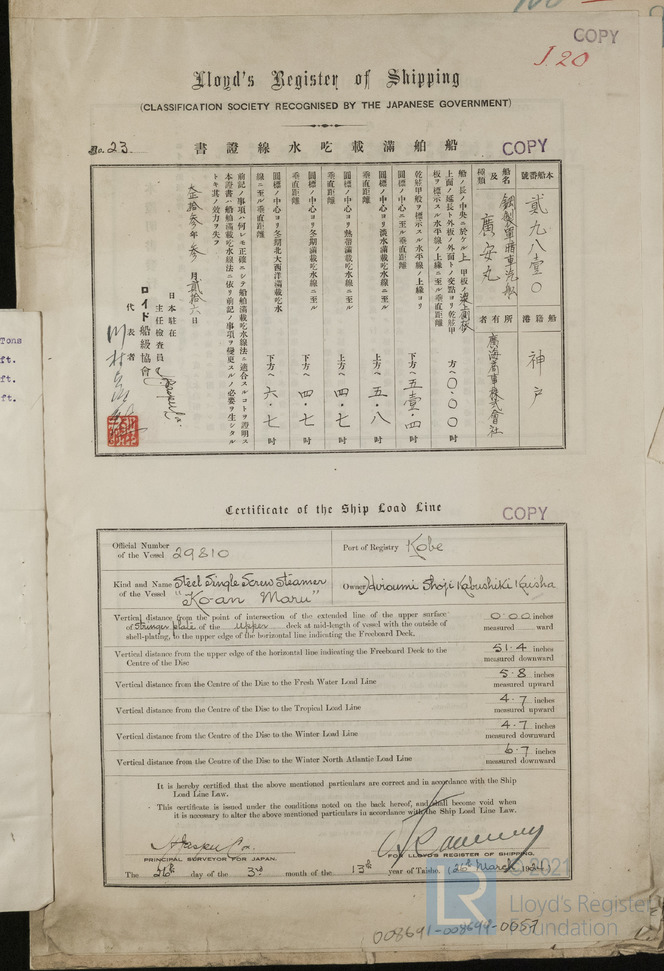 COPY
J.20
Lloyd's Register of Shipping
(CLASSIFICATION SOCIETY RECOGNISED BY THE JAPANESE GOVERNMENT)
No. 23.
船舶滿載吃水線證書
COPY
本船番號
貳九八壹〇
船籍港
神戸
船名及種類
鋼製單螺車汽船
廣安丸
所有者
廣海商事株式會社
船ノ長ノ中央ニ於ケル上甲板ノ梁上側板
上面ノ延長ト外板ノ外面トノ交點ヨリ乾舷甲
板ヲ標示スル水平線ノ上緣ニ至ル垂直距離
方へ〇.〇〇吋
乾舷甲板ヲ標示スル水平線ノ上緣ヨリ
圓標ノ中心ニ至ル垂直距離
下方へ五壹.四吋
圓標ノ中心ヨリ淡水滿載吃水線ニ至ル
垂直距離
上方へ五.八吋
圓標ノ中心ヨリ熱帶滿載吃水線ニ至ル
垂直距離
上方へ四.七吋
圓標ノ中心ヨリ冬期滿載吃水線ニ至ル
垂直距離
下方へ四.七吋
圓標ノ中心ヨリ冬期北大西洋滿載吃水
線ニ至ル垂直距離
下方へ六.七吋
前記ノ事項ハ何レモ正確ニシテ船舶滿載吃水線法ニ適合スルコトヲ證明ス
本證書ハ船舶滿載吃水線法ニ依リ前記ノ事項ヲ變更スルノ必要ヲ生シタル
トキ其ノ效力ヲ失フ
大正拾參年參月貳拾六日
日本駐在
主任檢査員
ロイド船級協會
代表者
Tons
ft.
ft.
ft.
Certificate of the Ship Load Line
COPY
Official Number of the Vessel 29810
Port of Registry Kobe
Kind and Name of the Vessel Steel Single Screw Steamer "Ko-an Maru"
Owner Hiroumi Shoji Kabushiki Kaisha
Vertical distance from the point of intersection of the extended line of the upper surface
of Stringer plate of the Upper deck at mid-length of vessel with the outside of
shell-plating, to the upper edge of the horizontal line indicating the Freeboard Deck.
0.00 inches
measured ward
Vertical distance from the upper edge of the horizontal line indicating the Freeboard Deck to the
Centre of the Disc
51.4 inches
measured downward
Vertical distance from the Centre of the Disc to the Fresh Water Load Line
5.8 inches
measured upward
Vertical distance from the Centre of the Disc to the Tropical Load Line
4.7 inches
measured upward
Vertical distance from the Centre of the Disc to the Winter Load Line
4.7 inches
measured downward
Vertical distance from the Centre of the Disc to the Winter North Atlantic Load Line
6.7 inches
measured downward
It is hereby certified that the above mentioned particulars are correct and in accordance with the Ship
Load Line Law.
This certificate is issued under the conditions noted on the back hereof, and shall become void when
it is necessary to alter the above mentioned particulars in accordance with the Ship Load Line Law.
PRINCIPAL SURVEYOR FOR JAPAN.
FOR LLOYD'S REGISTER OF SHIPPING.
The 26th day of the 3rd month of the 13th year of Taisho. (26th March 1924)
© 2021
LR
Lloyd's Register
Foundation
008691-008699-0057